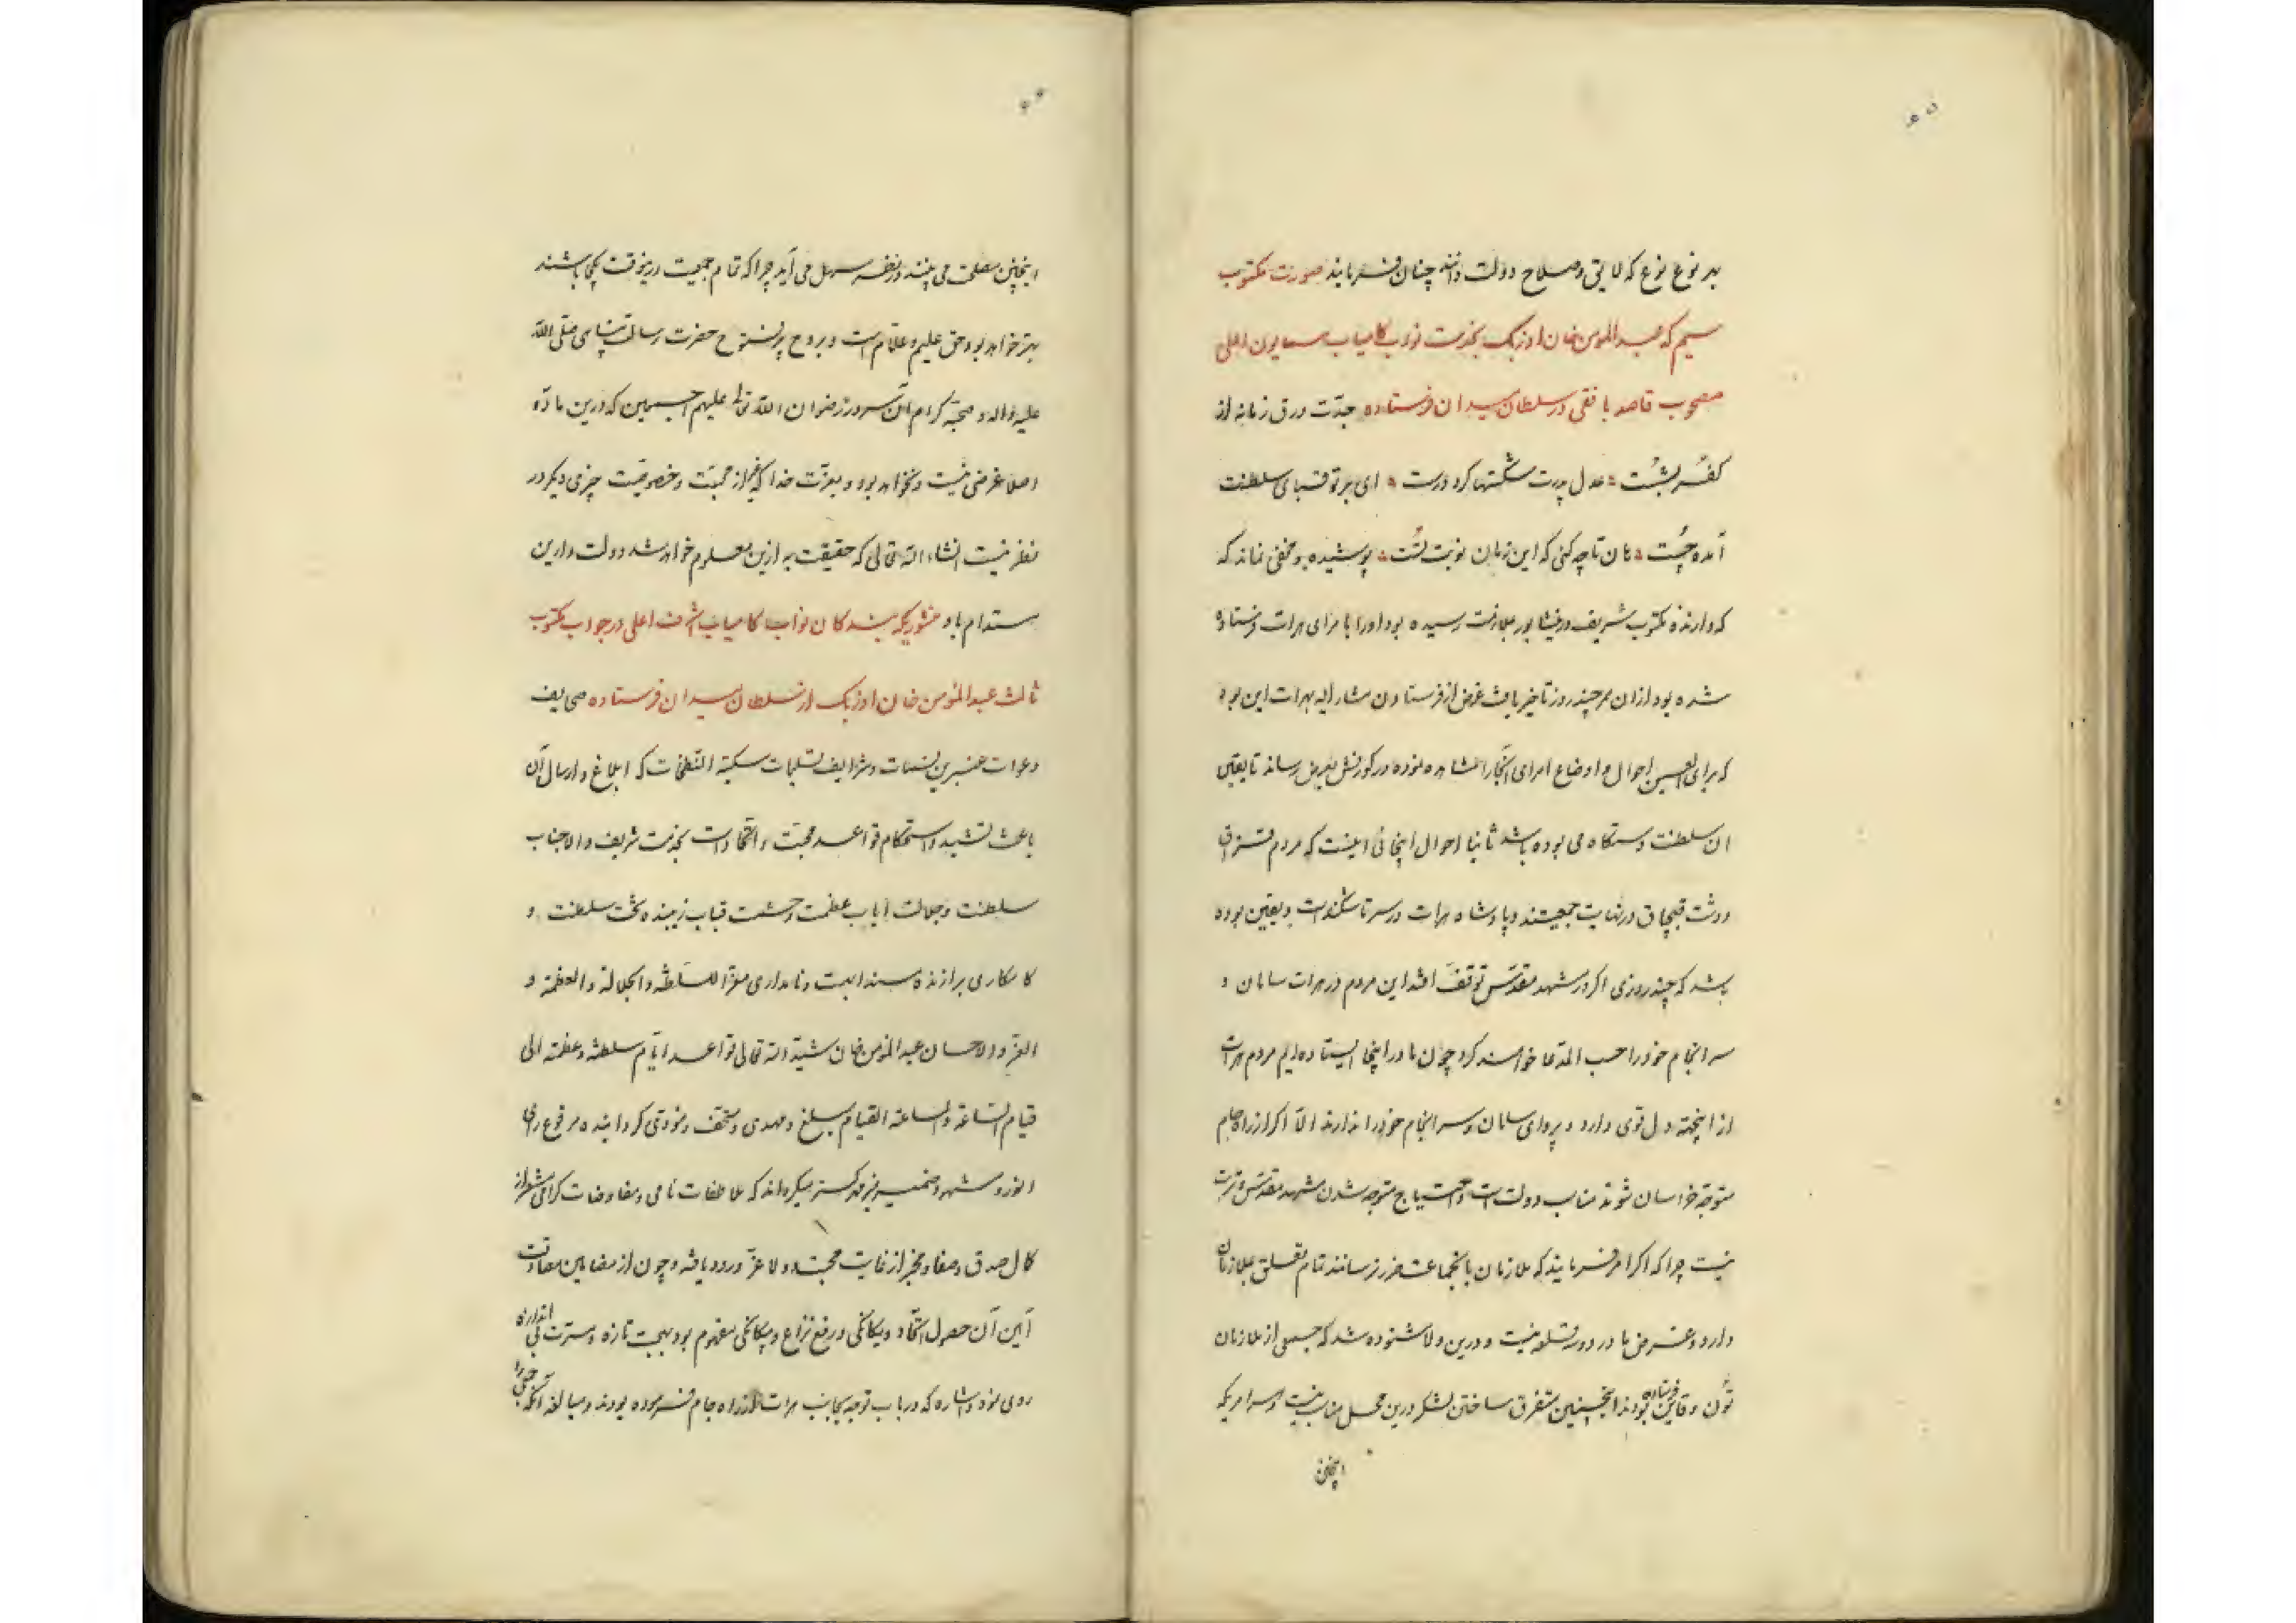 ۶۵
بهر نوع نوع که لایق و صلاح دولت دانند چنان فرمایند صورت مکتوب
سیم که عبدالمومن خان اوزبک بخدمت نواب کامیاب همایون اعلی
مصحوب قاصد بافقی در سلطان میدان فرستاده جدّت ورق زمانه از
کفر بشُست ؞ عدل پدرت شکستها کرد درست ؞ ای بر تو قبای سلطنت
آمده چُست ؞ هان تا چه کنی که این زمان نوبت تُست ؞ پوشیده و مخفی نماند که
که دارنده مکتوب شریف در نیشابور بملازمت رسیده بود او را بامرای هرات فرستاده
شده بود از آن ممر چند روز تاخیر یافت غرض از فرستادن مشار الیه بهرات این بود
که برای العین احوال و اوضاع امرای آنجا را مشاهده نموده در کورنش بعرض رساند تا یقین
آن سلطنت دستگاه می بوده باشد ثانیا احوال اینجائی اینست که مردم قزاق
و دشت قبچاق در نهایت جمعیتند و پادشاه هرات در سر تاشکند است و یقین بوده
باشد که چند روزی اگر در مشهد مقدّس توقف افتد این مردم در هرات سامان و
سرانجام خود را حسب المدّعا خواهند کرد چون ما در اینجا ایستاده‌ایم مردم هرات
از اینجهته دل قوی دارد و پروای سامان و سرانجام خود را ندارند الّا اگر از راه جام
متوجّه خراسان شوند مناسب دولت است و احتیاج متوجه شدن مشهد مقدّس و تربت
نیست چرا که اگر امر فرمایند که ملازمان بانجماعت ضرر نرسانند تمام تعلق بملازمان
دارد و غرض ما در دو سه قلعه نیست و درین ولا شنوده شد که جمعی از ملازمان
تُون و قاین فرستاده بودند اینچنین متفرق ساختن لشکر درین محل مناسب نیست و هر امریکه
اینچنین
۶۶
اینچنین مصلحت می بینند در نظر سهل می آید چرا که تمام جمعیت درینوقت یکجا باشند
بهتر خواهد بود حق علیم و علّام است و بروح پر فتوح حضرت رسالت پناهی صلّی اللّه
علیه و اله و صحبه کرام آن سرور رضوان اللّه تعالی علیهم اجمعین که درین مادّه
اصلا غرضی نیست و نخواهد بود و بعزّت خدا که غیر از محبّت و خصوصیّت چیزی دیگر در
نظر نیست انشاء اللّه تعالی که حقیقت به ازین معلوم خواهد شد دولت دارین
مستدام باد منشوریکه بندگان نواب کامیاب اشرف اعلی در جواب مکتوب
ثالث عبدالمؤمن خان اوزبک از سلطان میدان فرستاده صحایف
دعوات عنبرین نسمات و شرایف تسلیمات مسکیة النّفحات که ابلاغ و ارسال آن
باعث تشیید و استحکام قواعد محبّت و اتّحاد است بخدمت شریف والاجناب
سلطنت و جلالت ایاب عظمت و حشمت قباب زیبنده تخت سلطنت و
کامکاری برازنده مسند ابهت و نامداری معزّا للسّلطنة و الجلالة و العظمة و
العزّ و الاحسان عبدالمؤمن خان شیّد اللّه تعالی قواعد ایّام سلطنته و عظمته الی
قیام السّاعة و الساعة القیام مبلغ و مهدی و متحف و مودّی گردانیده مرفوع رای
انور و مشهود ضمیر منیر مهر گستر میگرداند که ملاطفات نامی و مفاوضات گرامی مشعر از
کمال صدق و صفا و مخبر از غایت محبت و ولا عزّ ورود یافته و چون از مضامین صداقت
آیین آن حصول اتّحاد و یگانگی و رفع نزاع و بیگانگی مفهوم بود بهجت تازه و مسرّت بی اندازه
روی نمود اشاره که در باب توجه بجانب هرات از راه جام فرموده بودند و مبالغه آنکه